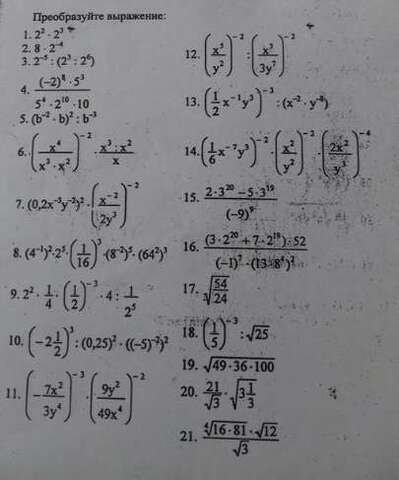 Преобразуйте выражение:
1. 2² · 2³
2. 8 · 2⁻⁴
3. 2⁻⁵ : (2³ : 2⁶)
4. ((−2)⁸ · 5³) / (5⁴ · 2¹⁰ · 10)
5. (b⁻² · b)² : b⁻³
6. (x⁴ / (x³ · x²))⁻² · (x³ : x²) / x
7. (0,2x⁻³y⁻²)² · (x⁻² / 2y³)⁻²
8. (4⁻¹)² · 2⁵ · (1/16)³ · (8⁻²)⁵ · (64²)³
9. 2² · 1/4 · (1/2)⁻³ · 4 : 1/2⁵
10. (−2 1/2)³ : (0,25)² · ((−5)⁻²)²
11. (−7x² / 3y⁴)⁻³ · (9y² / 49x⁴)⁻²
12. (x⁵ / y²)⁻² : (x⁵ / 3y⁷)⁻²
13. (1/2 x⁻¹y³)⁻³ : (x⁻² · y⁻⁸)
14. (1/6 x⁻⁷y³)⁻² · (x² / y²)⁻² · (2x² / y³)⁻⁴
15. (2·3²⁰ − 5·3¹⁹) / (−9)⁹
16. (3·2²⁰ + 7·2¹⁹)·52 / (−1)⁷·(13·8⁴)²
17. √(54/24)
18. (1/5)⁻³ : √25
19. √(49·36·100)
20. 21/√3 · √(3 1/3)
21. (⁴√(16·81) · √12) / √3